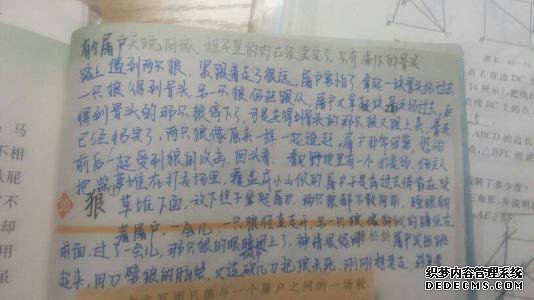 有个屠户天晚回家，担子里的肉已经卖完了，只有剩下的骨头
路上遇到两只狼，紧跟着走了很远，屠户害怕了，拿起一块骨头扔过去
一只狼得到骨头，另一只狼仍然跟从，屠户又拿起块骨头扔过去，后
得到骨头的那只狼停下了，可是先得到骨头的那只狼又跟上来，骨头
已经扔完了，两只狼像原来一样一起追赶，屠户非常困窘，恐怕
前后一起受到狼的攻击，回头看，看见野地里有一个打麦场，场主人
把柴草堆在打麦场里，覆盖成小山似的，屠户于是奔过去倚靠在柴
草堆下面，放下担子拿起屠刀，两只狼都不敢向前，瞪眼朝
狼
30
着屠户，一会儿，一只狼径直走开，另一只狼像狗似的蹲坐在
前面，过了一会儿，那只狼的眼睛闭上了，神情很悠闲，屠户突然跳
松龄
起来，用刀劈狼的脑袋，又连砍几刀把狼杀死，刚刚想要走，转身看
写两只狼与一个屠户之间的一场较
马
不相
从屁
平
不
却
点E在边DC上
ABCD的边长
△BFC
旋转了多少度？
织梦内容管理系统
DEDECMS.COM